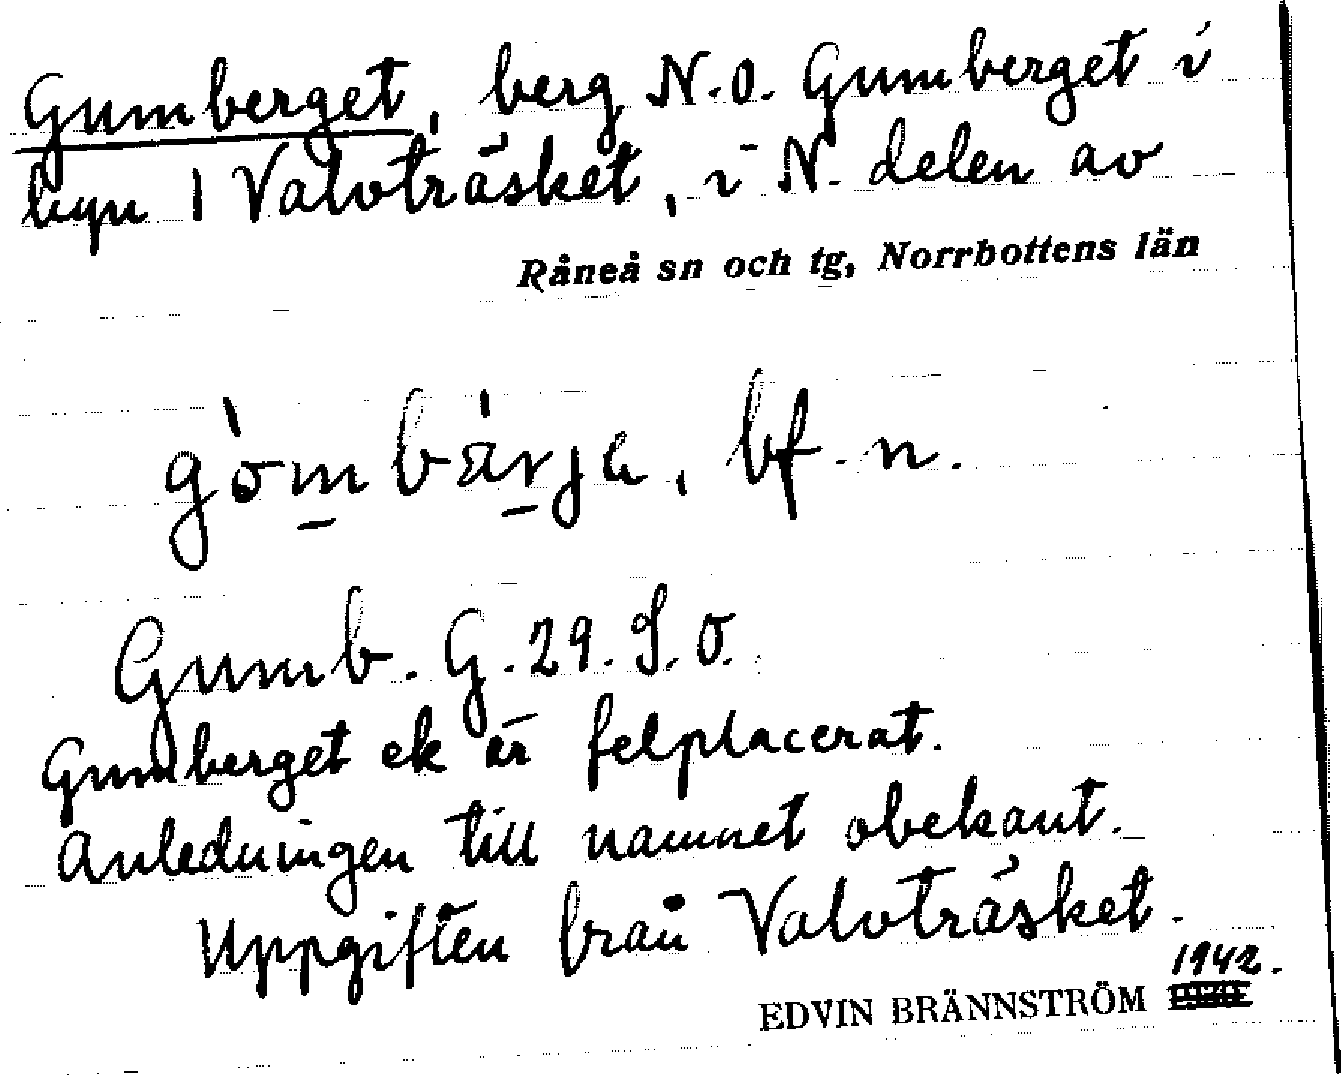 Gumberget, berg N.O. Gumberget i
byn i Valvträsket, i N. delen av
Råneå sn och tg, Norrbottens län
gòmbä́rja, bf. n.
Gumb. G. 29. S.O.
Gumberget ek är felplacerat.
Anledningen till namnet obekant.
Uppgiften från Valvträsket.
1942.
EDVIN BRÄNNSTRÖM